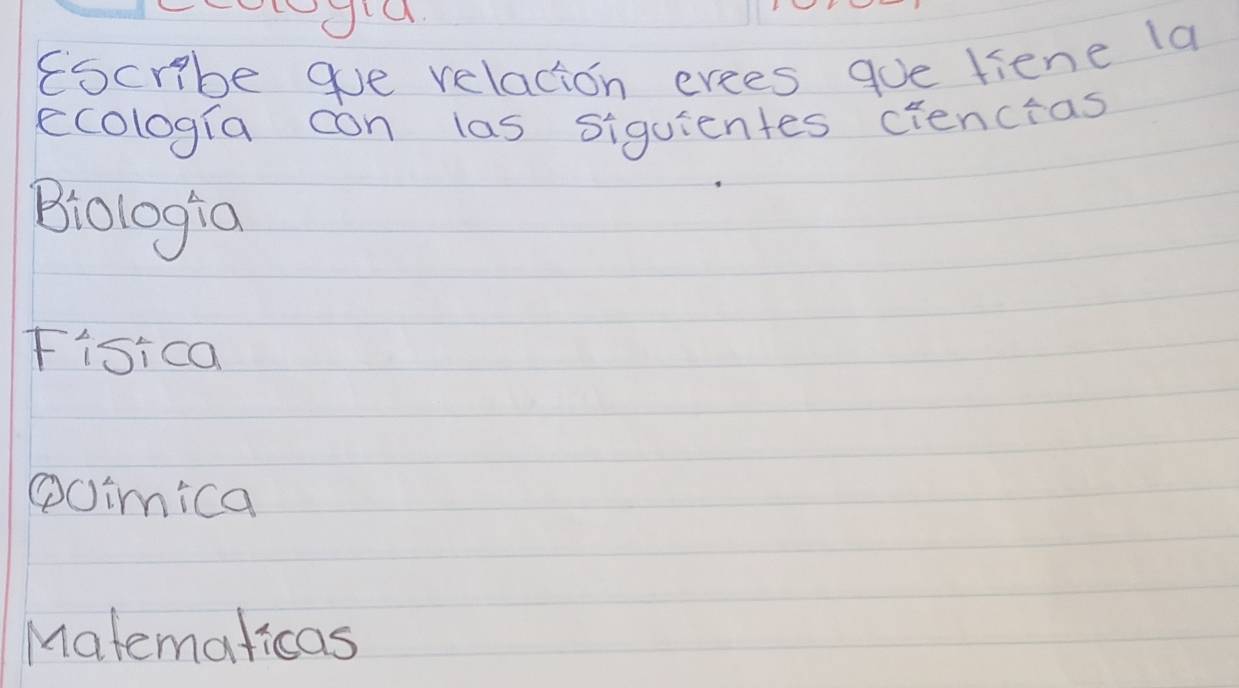 Escribe que relación crees que tiene la
ecología con las siguientes ciencias
Biología
Física
Química
Matematicas